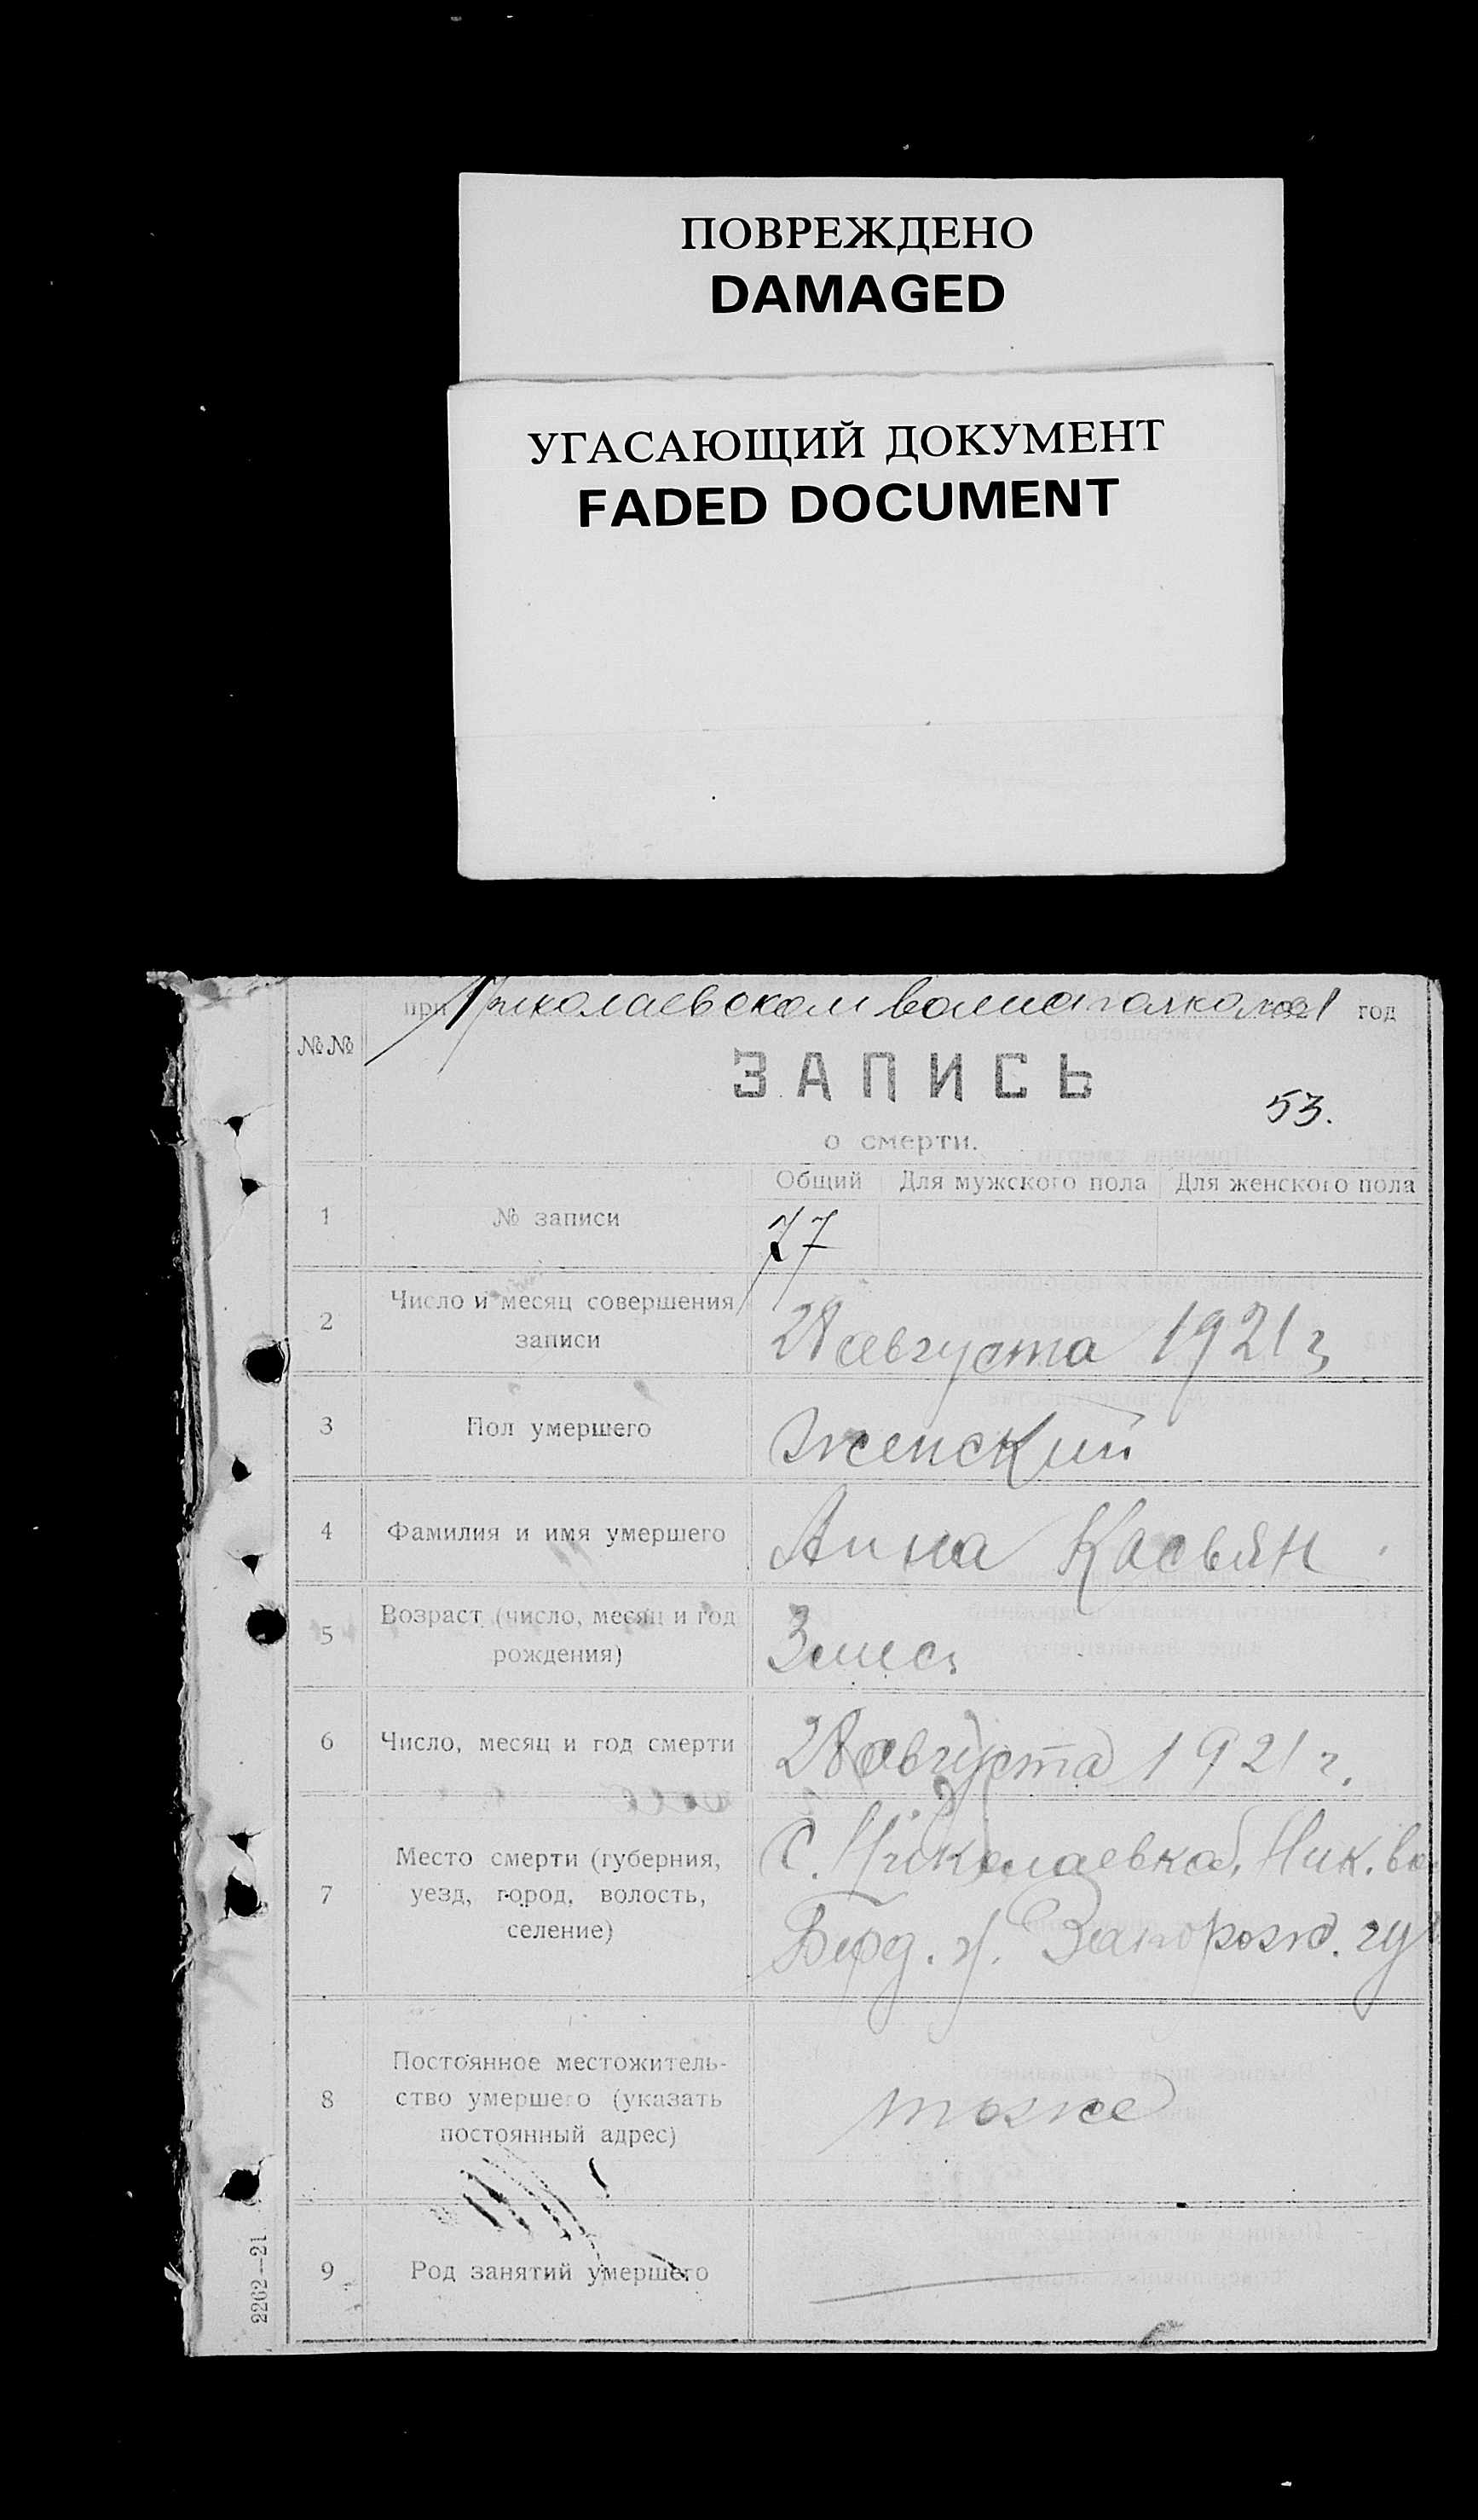 ПОВРЕЖДЕНО
DAMAGED
УГАСАЮЩИЙ ДОКУМЕНТ
FADED DOCUMENT
при Николаевском 1921 год
№№
ЗАПИСЬ
53.
о смерти.
Общий Для мужского пола Для женского пола
1 № записи 77
2 Число и месяц совершения
записи 28 августа 1921 г.
3 Пол умершего Женский
4 Фамилия и имя умершего Анна Касьян
5 Возраст (число, месяц и год
рождения) 3 мес.
6 Число, месяц и год смерти 28 августа 1921 г.
7 Место смерти (губерния,
уезд, город, волость,
селение)
с. Николаевка, Ник. во
Берд. у. Запорож. гу
8 Постоянное местожитель-
ство умершего (указать
постоянный адрес)
тоже
9 Род занятий умершего
2262—21